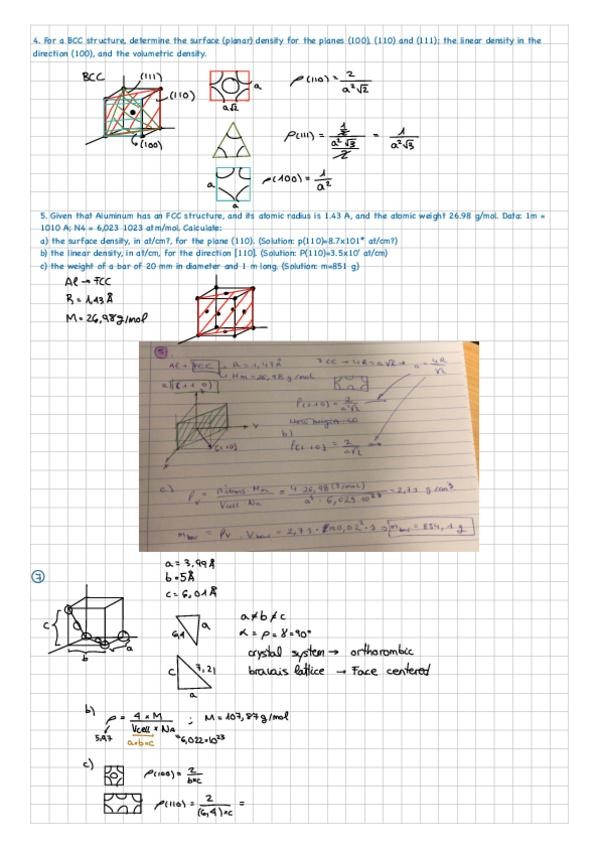 4. For a BCC structure, determine the surface (planar) density for the planes (100), (110) and (111); the linear density in the
direction (100), and the volumetric density.
BCC
(111)
(110)
(100)
a
a√2
ρ(110) = 2 / a²√2
ρ(111) = ½ / (a²√3 / 2) = 1 / a²√3
a
a
ρ(100) = 1 / a²
5. Given that Aluminum has an FCC structure, and its atomic radius is 1.43 A, and the atomic weight 26.98 g/mol. Data: 1m =
1010 A; N4 = 6,023 1023 atm/mol. Calculate:
a) the surface density, in at/cm?, for the plane (110). (Solution: p(110)=8.7x101* at/cm?)
b) the linear density, in at/cm, for the direction [110]. (Solution: P(110)=3.5x10' at/cm)
c) the weight of a bar of 20 mm in diameter and 1 m long. (Solution: m=851 g)
Al → FCC
R = 1.43 Å
M = 26,98 g/mol
5.
Al → FCC
R = 1,43 Å
Mm = 26,98 g/mol
4R = a√2 → a = 4R / √2
a) (110)
b)
c)
7
a = 3,99 Å
b = 5 Å
c = 6,01 Å
c
b
a
6,4
a
a ≠ b ≠ c
α = β = γ = 90°
crystal system → orthorombic
c
7,21
a
bravais lattice → Face centered
b) ρ = 4 × M / Vcell × NA ; M = 107,87 g/mol
5,97
a×b×c
6,022×10²³
c)
ρ(100) = 2 / b×c
ρ(110) = 2 / (6,4)×c =